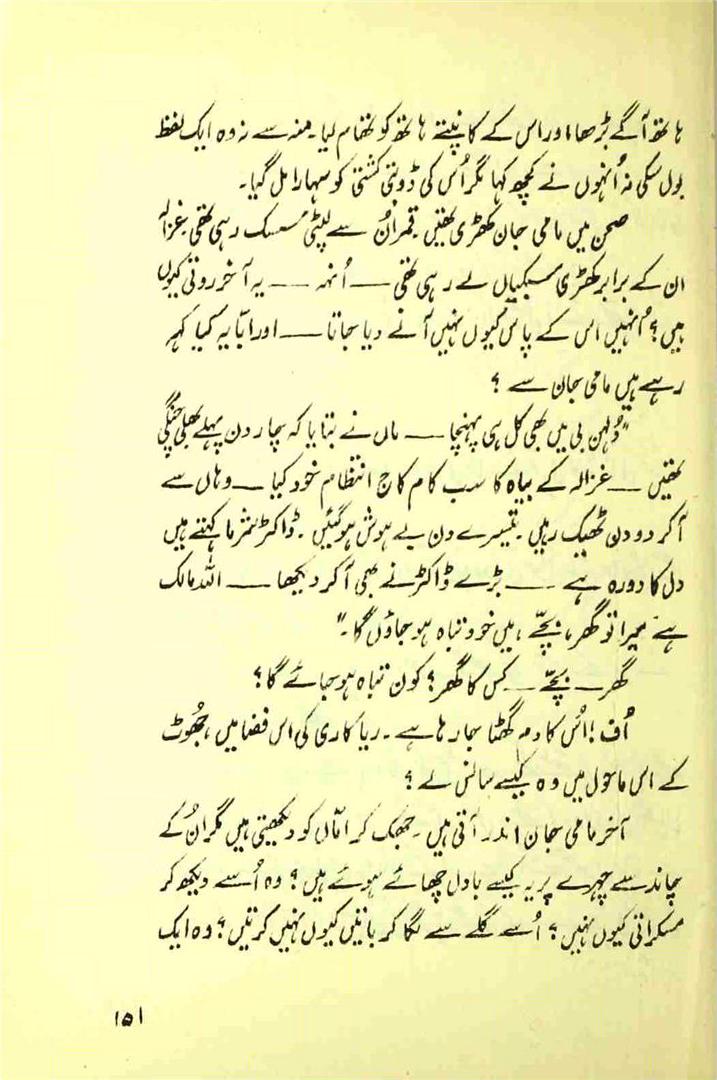 ہاتھ آگے بڑھا، اور اس کے کانپتے ہاتھ کو تھام لیا۔ منہ سے نہ وہ ایک لفظ
بول سکی نہ اُنہوں نے کچھ کہا مگر اُس کی ڈوبتی کشتی کو سہارا مل گیا۔
صحن میں مامی جان کھڑی تھیں۔ قمر اُن سے لپٹی سسک رہی تھی۔ غزالہ
ان کے برابر کھڑی سسکیاں لے رہی تھی — اُنہہ — یہ آخر روتی کیوں
ہیں؟ اُنہیں اس کے پاس کیوں نہیں آنے دیا جاتا — اور ابّا یہ کیا کہہ
رہے ہیں مامی جان سے؟
"دُلہن بی میں بھی کل ہی پہنچا — ماں نے بتایا کہ چار دن پہلے بھلی چنگی
تھیں — غزالہ کے بیاہ کا سب کام کاج انتظام خود کیا — وہاں سے
آکر دو دن ٹھیک رہیں۔ تیسرے دن بے ہوش ہو گئیں۔ ڈاکٹر شرما کہتے ہیں
دل کا دورہ ہے — بڑے ڈاکٹر نے بھی آکر دیکھا — اللہ مالک
ہے میرا تو گھر، بچّے، میں خود تباہ ہو جاؤں گا۔"
گھر — بچّے — کس کا گھر؟ کون تباہ ہو جائے گا؟
اُف! اُس کا دم گھٹا جا رہا ہے۔ ریاکاری کی اس فضا میں، جھُوٹ
کے اس ماحول میں وہ کیسے سانس لے؟
آخر مامی جان اندر آتی ہیں۔ جھک کر امّاں کو دیکھتی ہیں مگر اُن کے
چاند سے چہرے پر یہ کیسے بادل چھائے ہوئے ہیں؟ وہ اُسے دیکھ کر
مسکراتی کیوں نہیں؟ اُسے گلے سے لگا کر باتیں کیوں نہیں کرتیں؟ وہ ایک
۱۵۱